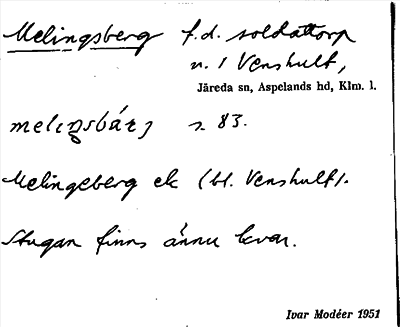 Melingsberg f.d. soldattorp
u. / Venshult,
Järeda sn, Aspelands hd, Klm. l.
melıŋsbárj s. 83.
Melingeberg ek (bl. Venshult).
Stugan finns ännu kvar.
Ivar Modéer 1951